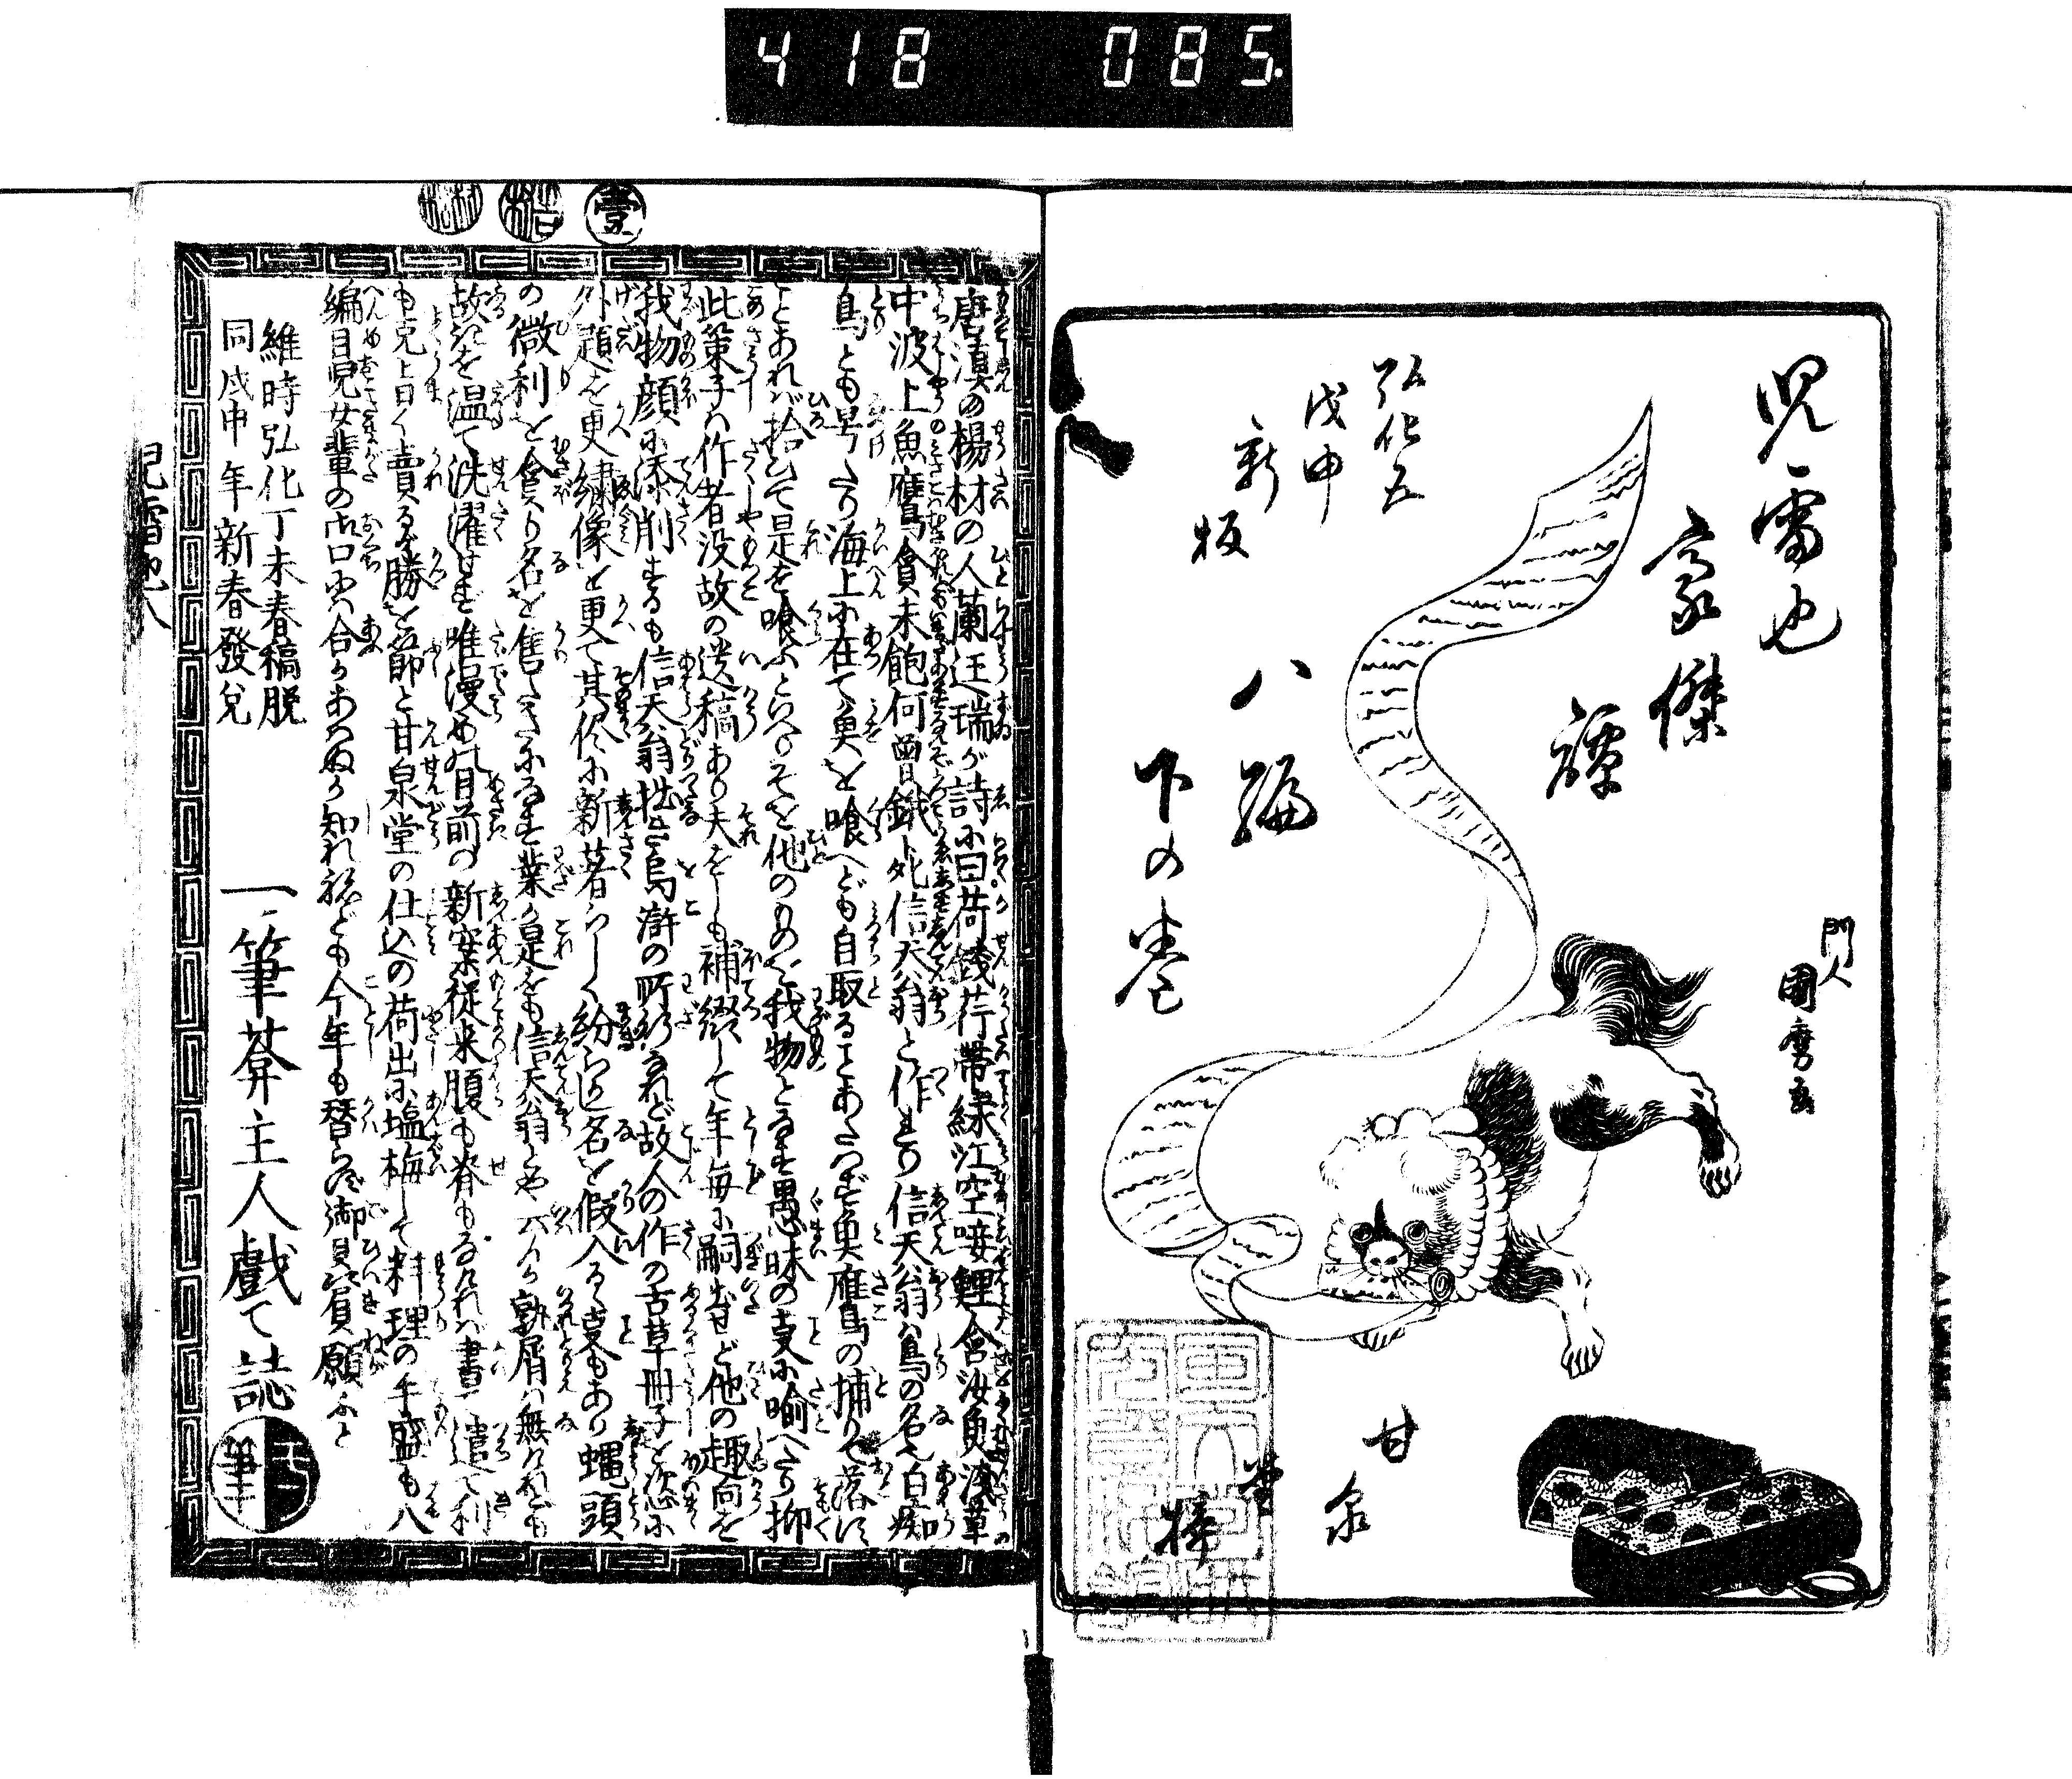 418 085.
児雷也
豪傑
譚
弘化五
戊申
新
板
八編
下の巻
門人
甘
泉
堂
梓
唐滇の楊材の人蘭廷瑞が詩に曰荷銭荇帯緑江空唼鯉含汝負浅草
中波上魚鷹貪未飽何曽餓死信天翁と作れり信天翁は鳥の名也白痴
鳥とも号たり海上に在て魚を喰へども自取ることあたはず魚鷹の捕りて落す
ことあれば拾ひて是を喰ふといへりそを他のものを我物となす愚昧の事に喩へたり抑
此策子は作者没故の遺稿あり夫をしも補綴して年毎に嗣出せど他の趣向を
我物顔に添削するも信天翁拙き烏滸の所行なれど故人の作の古草冊子を恣に
外題を更繍像を更て其侭に新著らしく紛らし名を假入る事もあり蠅頭
の微利を貪り名を售たきになす業か是をも信天翁とや云ん
故きを温て洗濯せず唯漫めに目前の新案従来腹も脊もなければ書遣て利
も売上曰く売るが勝を節と甘泉堂の仕込の荷出に塩梅して料理の手盛も八
編目児女輩の御口に合かあはぬか知れねども今年も替らず御贔屓願ふと
維時弘化丁未春稿脱
同戊申年新春發兌
一筆菴主人戯て誌
児雷也八